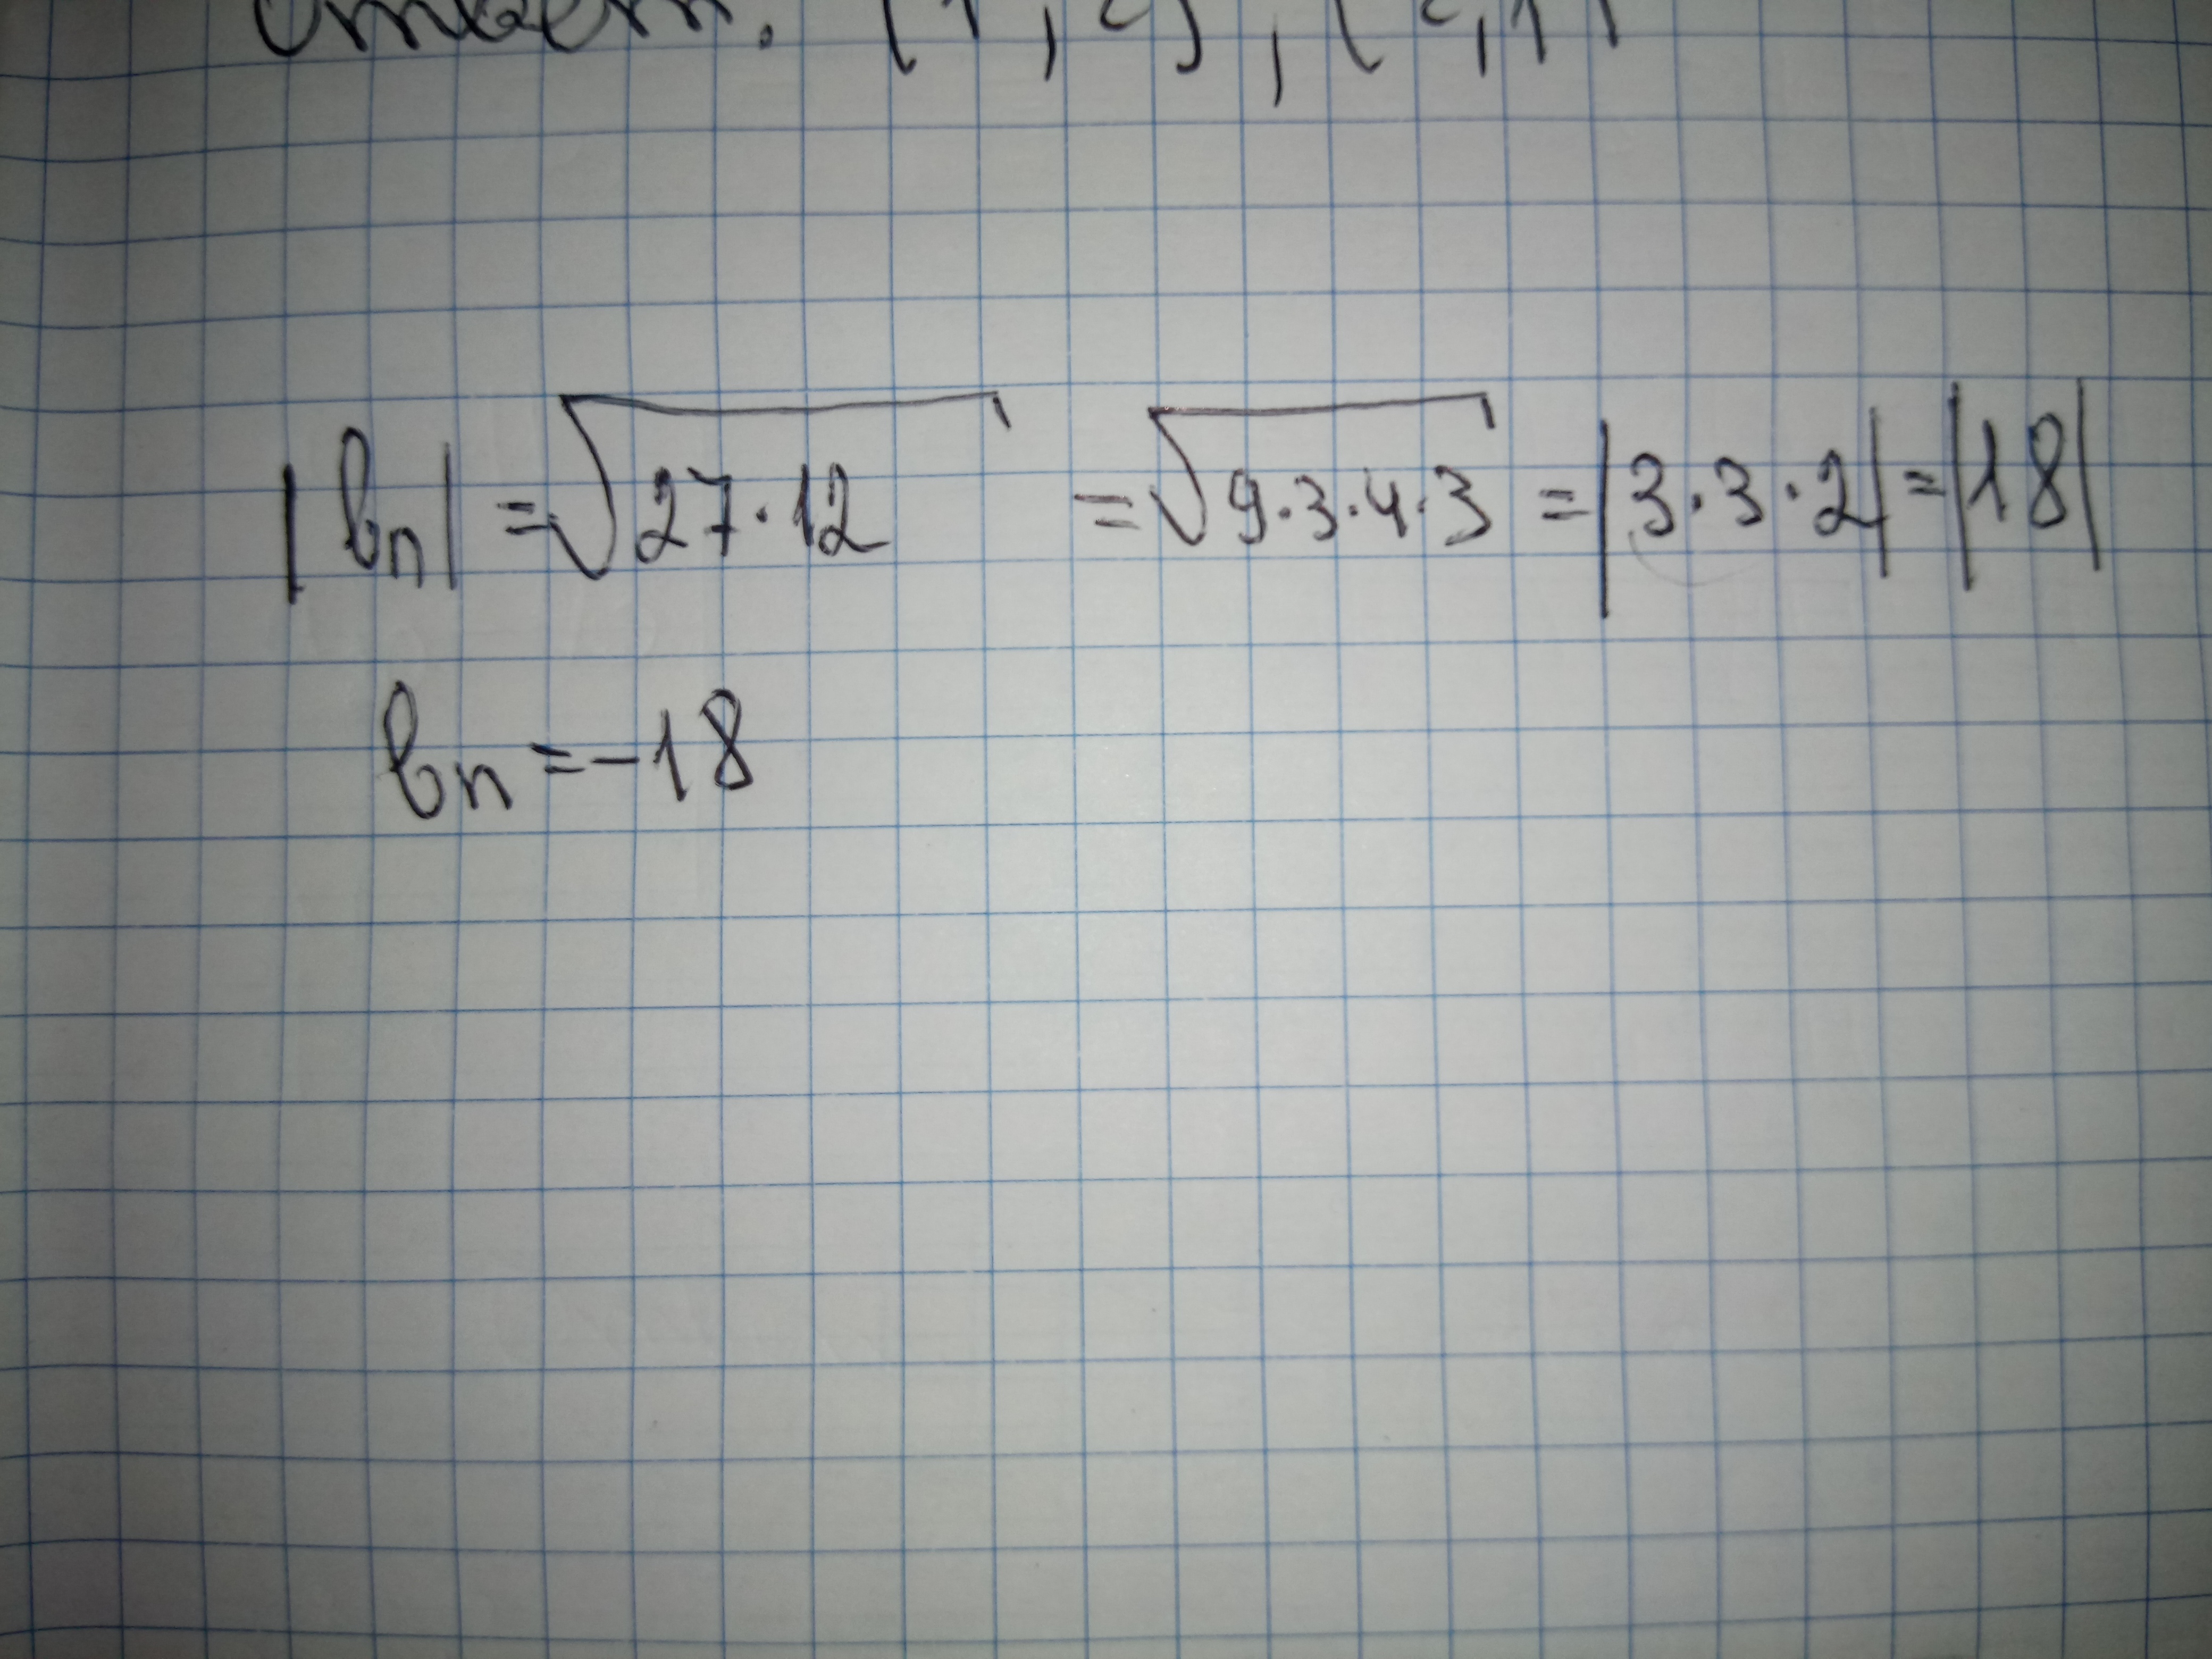 Ответ:
|bn| = √27·12 = √9·3·4·3 = |3·3·2| = |18|
bn = -18